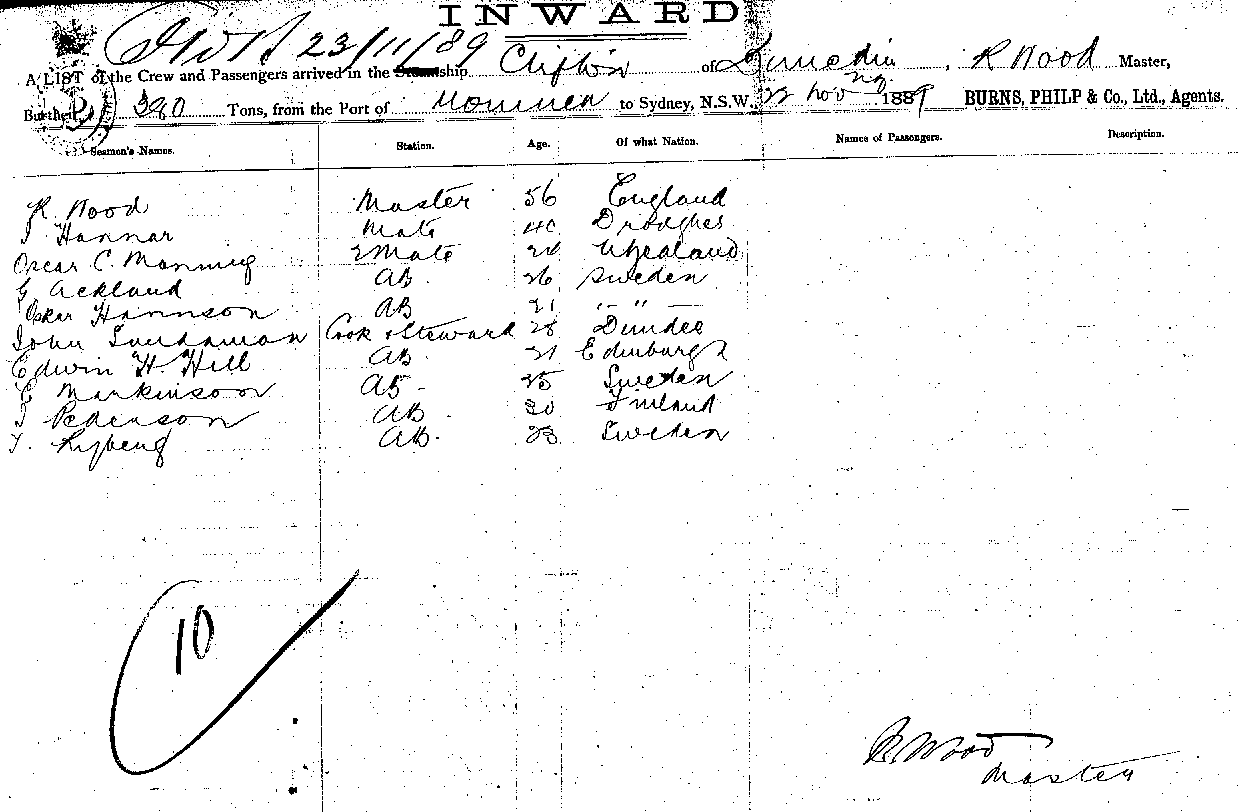 INWARD
23/11/89
A LIST of the Crew and Passengers arrived in the Steamship Clifton of Dunedin N.Z., R Wood Master,
Burthen 380 Tons, from the Port of to Sydney, N.S.W. 22 Nov 1889 BURNS, PHILP & Co., Ltd., Agents.
Seamen's Names. Station. Age. Of what Nation. Names of Passengers. Description.
R. Wood Master 56 England
Hannar Mate 40
Oscar C. Manning 2 Mate
G Ackland AB 26 Sweden
Oskar Hannson AB 21 -"-
John Cook & Steward 28 Dundee
Edwin H Hill AB 21 Edinburgh
E Markinson AB 25 Sweden
Pederson AB Finland
AB. 23 Sweden
10
R Wood
Master